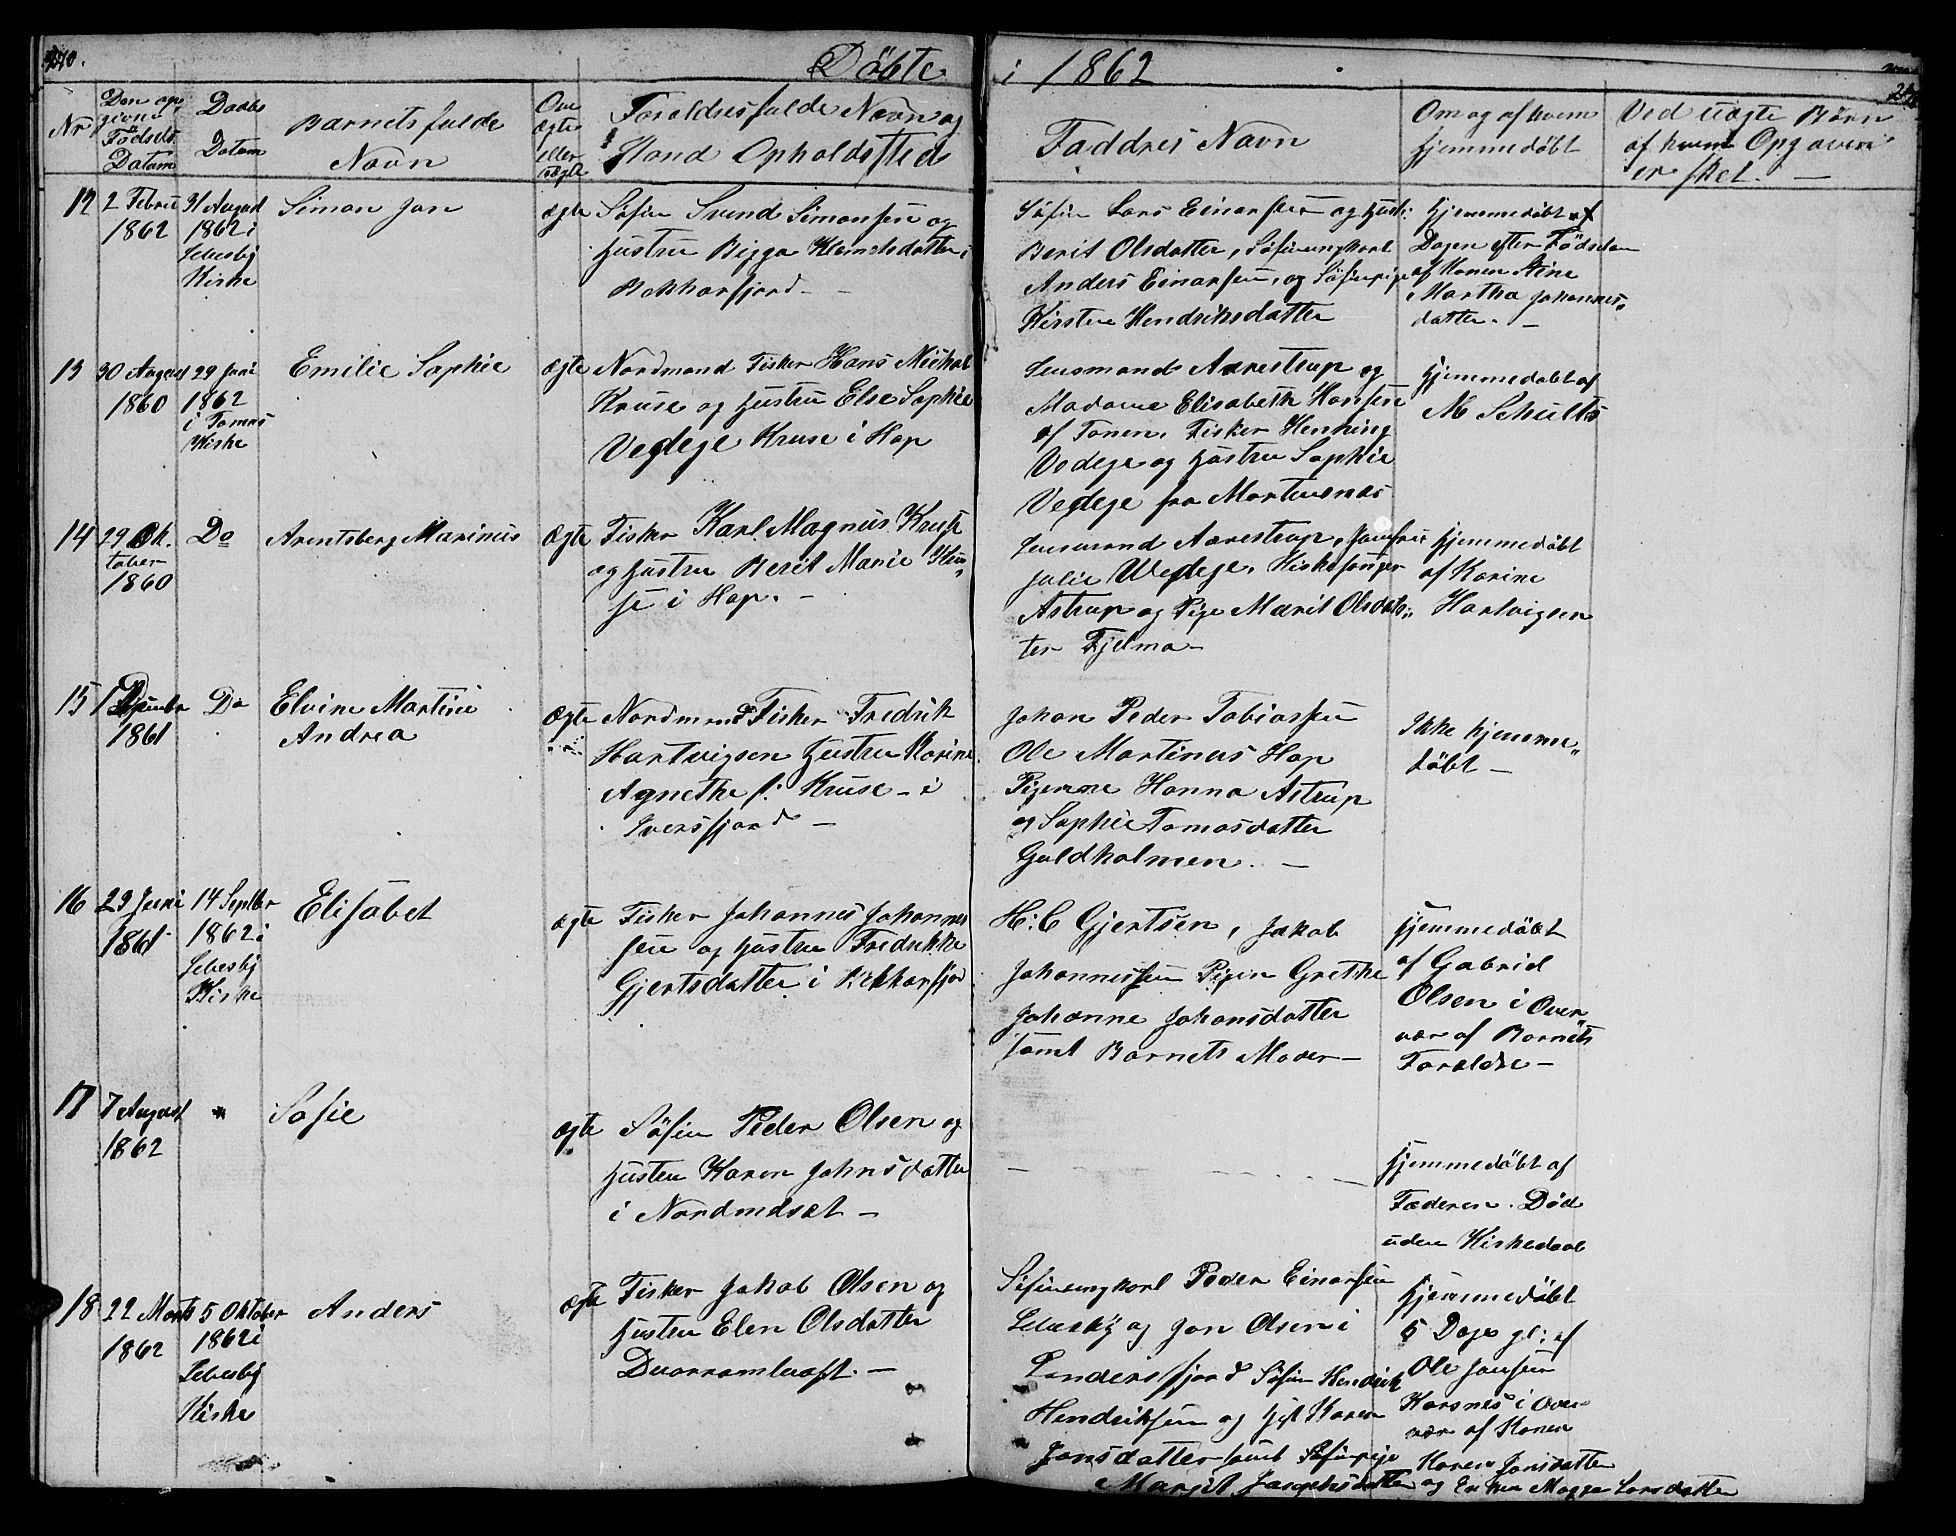 Döbte i 1862
Nr
Den op
givne
Födsels
Datum
Daabs
Datum
Barnets fulde
Navn
Om
ægte
eller
uægte
Foraldres fulde Navn og
Stand Opholdssted
Faddres Navn
Om og af hvem
hjemmedöbt
Ved uægte Börn
af hvem Opgaven
er sket. —
12
2 Febru
1862
31 August
1862 i
Lebesby
Kirke
Simon Jon
ægte
Söfin Svend Simonsen og
Hustru Bigga Klemetsdatter i
Bekkarfjord —
Söfin Lars Einarsen og Hust:
Berit Olsdatter, Söfinungkarl
Anders Einarsen, og Söfinpige
Kirsten Hendriksdatter
Hjemmedöbt af
Dagen efter Födselen
af Konen Stine
Martha Johannes„
datter. —
13
30 August
1860
29 Juni
1862
i Tomas
Kirke
Emilie Sophie
ægte
Nordmand Fisker Hans Nickol
Kruse og Hustru Else Sophie
Vedege Kruse i Hop
Lensmand Aarestrup og
Madame Elisabeth Hansen
af Tanen, Fisker Henning
Vedege og Hustru Sophie
Vedege fra Mortensnes
Hjemmedöbt af
N Schults
14
29 Ok.
tober
1860
Do
Arentsberg Marinus
ægte
Fisker Karl Magnus Kruse
og Hustru Berit Marie Kru„
se i Hop. —
Lensmand Aarestrup, Jomfru
Julie Wedege, Kirkesanger
Astrup og Pige Marit Olsdat„
ter Fjelma —
Hjemmedöbt
af Karine
Hartvigsen
15
1
1861
Do
Elvine Martine
Andrea
ægte
Nordmand Fisker Fredrik
Hartvigsen Hustru Karine
Agnethe f: Kruse — i
Iversfjord —
Johan Peder Tobiassen
Ole Martinus Hop
Pigerne Hanna Astrup
og Sophie Tomasdatter
Guldholmen. —
Ikke hjemme„
döbt —
16
29 Juni
1861
14 Septbr
1862 i
Lebesby
Kirke
Elisabet
ægte
Fisker Johannes Johannes
sen og Hustru Fredrikke
Gjertsdatter i Bekkarfjor
H: C Gjertsen, Jakob
Johannessen Pigen Grethe
Johanne Johansdatter
samt Barnets Moder —
Hjemmedöbt
af Gabriel
Olsen i Over„
vær af Barnets
Foraldre —
17
7 August
1862
„
Sofie
ægte
Söfin Peder Olsen og
Hustru Karen Johnsdatter
i Nordmdset —
—
Hjemmedöbt af
Faderen. Död
uden Kirkedaab
18
22 Marts
1862
5 Oktober
1862 i
Lebesby
Kirke
Anders
ægte
Fisker Jakob Olsen og
Hustru Elen Olsdatter
—
Söfinungkarl Peder Einarsen
Lebesby og Jon Olsen i
Landersfjord Söfin Hendrik
Hendriksen og Hst Karen
Jonsdatter samt Söfinpige
Margit Josephsdatter
Hjemmedöbt
5 Dage gl: af
Ole Jonsen
Karsnes i Over„
vær af Konen
Karen Jonsdatter
og Enken Magga Larsdatter